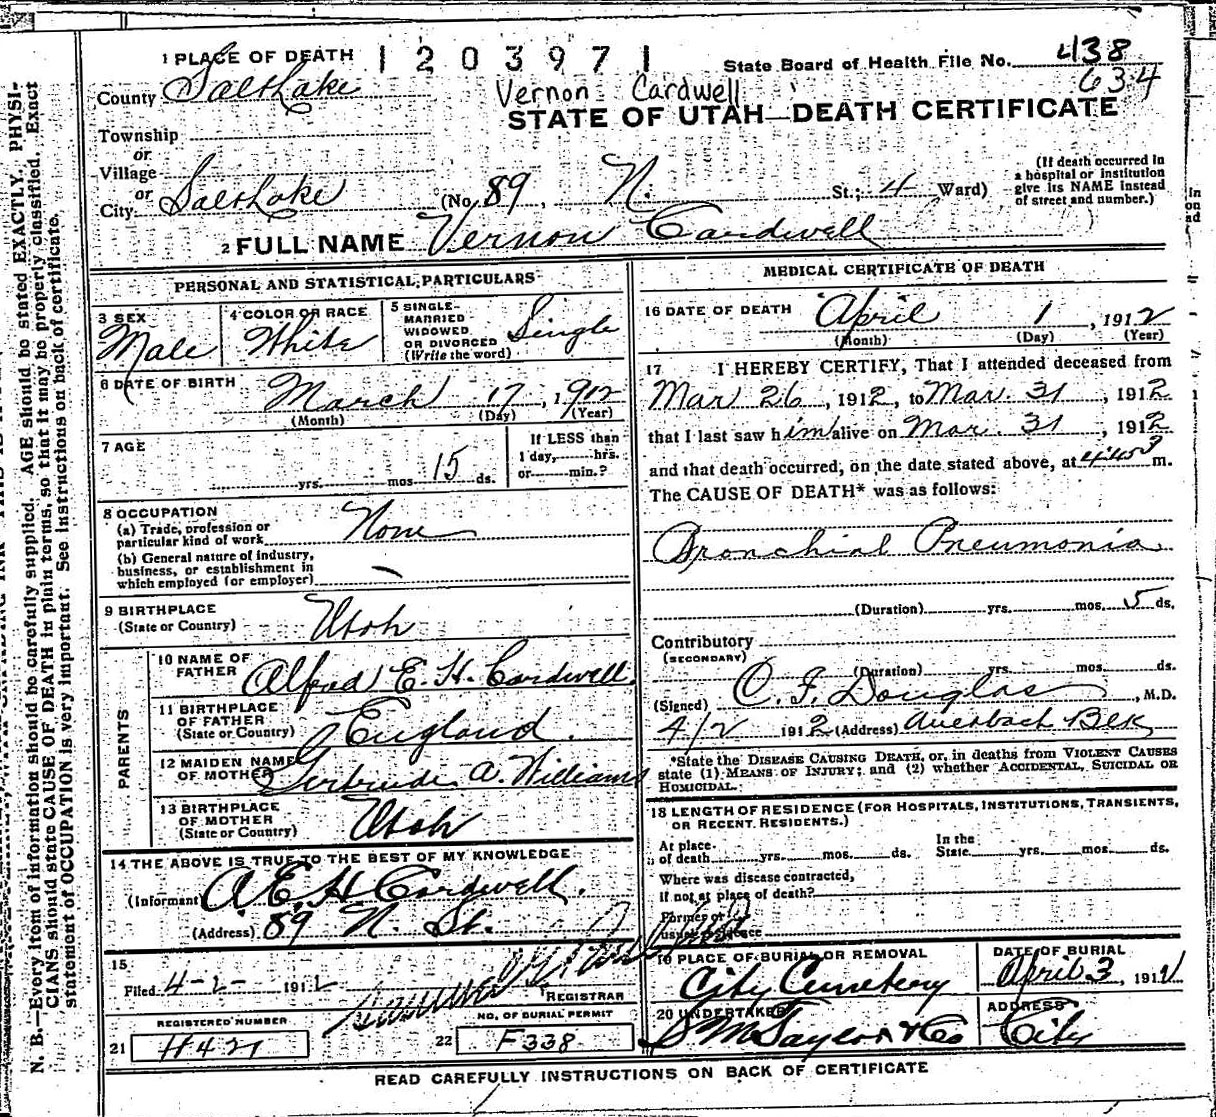 1 PLACE OF DEATH 1 2 0 3 9 7 1
State Board of Health File No. 438
634
County Salt Lake
Vernon Cardwell
STATE OF UTAH—DEATH CERTIFICATE
Township
or
Village
or
City Salt Lake (No. 89, N. St.; 4 Ward)
(If death occurred in a hospital or institution give its NAME instead of street and number.)
2 FULL NAME Vernon Cardwell
PERSONAL AND STATISTICAL PARTICULARS
3 SEX Male
4 COLOR OR RACE White
5 SINGLE MARRIED WIDOWED OR DIVORCED (Write the word) Single
6 DATE OF BIRTH March 17, 1912
(Month) (Day) (Year)
7 AGE yrs. mos 15 ds.
If LESS than 1 day, hrs. or min.?
8 OCCUPATION
(a) Trade, profession or particular kind of work None
(b) General nature of industry, business, or establishment in which employed (or employer) —
9 BIRTHPLACE (State or Country) Utah
PARENTS
10 NAME OF FATHER Alfred E. H. Cardwell
11 BIRTHPLACE OF FATHER (State or Country) England.
12 MAIDEN NAME OF MOTHER Gertrude A. Williams
13 BIRTHPLACE OF MOTHER (State or Country) Utah
14 THE ABOVE IS TRUE TO THE BEST OF MY KNOWLEDGE
(Informant) A. E. H. Cardwell.
(Address) 89 N. St.
15
Filed 4-2- 1912
REGISTRAR
REGISTERED NUMBER
21 H421
NO. OF BURIAL PERMIT
22 F338
MEDICAL CERTIFICATE OF DEATH
16 DATE OF DEATH April 1, 1912
(Month) (Day) (Year)
17 I HEREBY CERTIFY, That I attended deceased from
Mar 26, 1912, to Mar. 31, 1912
that I last saw him alive on Mar. 31, 1912
and that death occurred, on the date stated above, at m.
The CAUSE OF DEATH* was as follows:
Bronchial Pneumonia
(Duration) yrs. mos. 5 ds.
Contributory
(SECONDARY)
(Duration) yrs mos. ds.
(Signed) C. F. Douglas, M.D.
4/2 1912 (Address) Auerbach Blk
*State the DISEASE CAUSING DEATH, or, in deaths from VIOLENT CAUSES
state (1) MEANS OF INJURY; and (2) whether ACCIDENTAL, SUICIDAL OR
HOMICIDAL.
18 LENGTH OF RESIDENCE (FOR HOSPITALS, INSTITUTIONS, TRANSIENTS,
OR RECENT RESIDENTS.)
At place of death yrs. mos. ds. In the State yrs. mos. ds.
Where was disease contracted,
if not at place of death?
Former or
usual residence
19 PLACE OF BURIAL OR REMOVAL City Cemetery
DATE OF BURIAL April 3, 1912
20 UNDERTAKER S M Taylor & Co
ADDRESS City
READ CAREFULLY INSTRUCTIONS ON BACK OF CERTIFICATE
N. B.—Every item of information should be carefully supplied. AGE should be stated EXACTLY. PHYSI-
CIANS should state CAUSE OF DEATH in plain terms, so that it may be properly classified. Exact
statement of OCCUPATION is very important. See instructions on back of certificate.